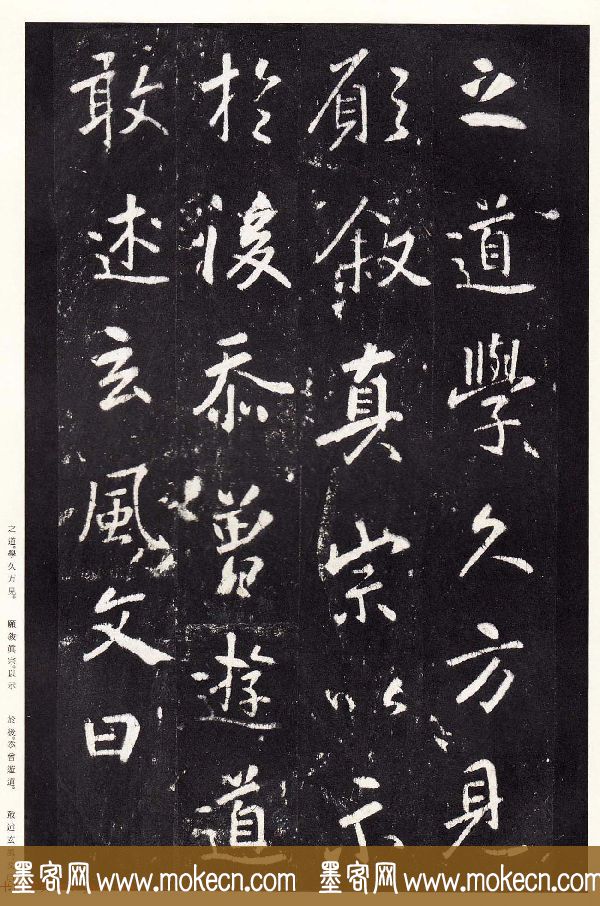 之道學久方見
願敘真宗以示
於後忝曾遊道
敢述玄風文曰
之道學久方見。 願敘眞宗。以示 於後。忝曾遊道。 敢述玄
墨客网 www.mokecn.com 墨客网 www.mokecn.com